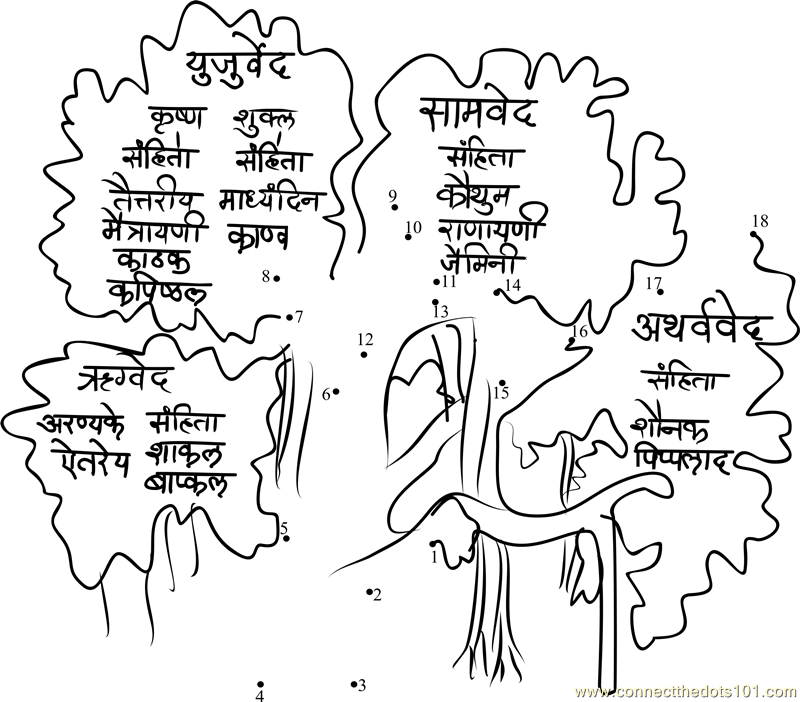 युजुर्वेद
कृष्ण शुक्ल
संहिता संहिता
तैत्तरीय माध्यंदिन
मैत्रायणी काण्व
काठक
कपिष्ठल
सामवेद
संहिता
कौथुम
राणायणी
जैमिनी
ऋग्वेद
अरण्यके संहिता
ऐतरेय शाकल
बाप्कल
अथर्ववेद
संहिता
शौनक
पिप्पलाद
9
10
18
8
11
14
17
7
13
16
12
6
15
5
1
2
3
4
www.connectthedots101.com